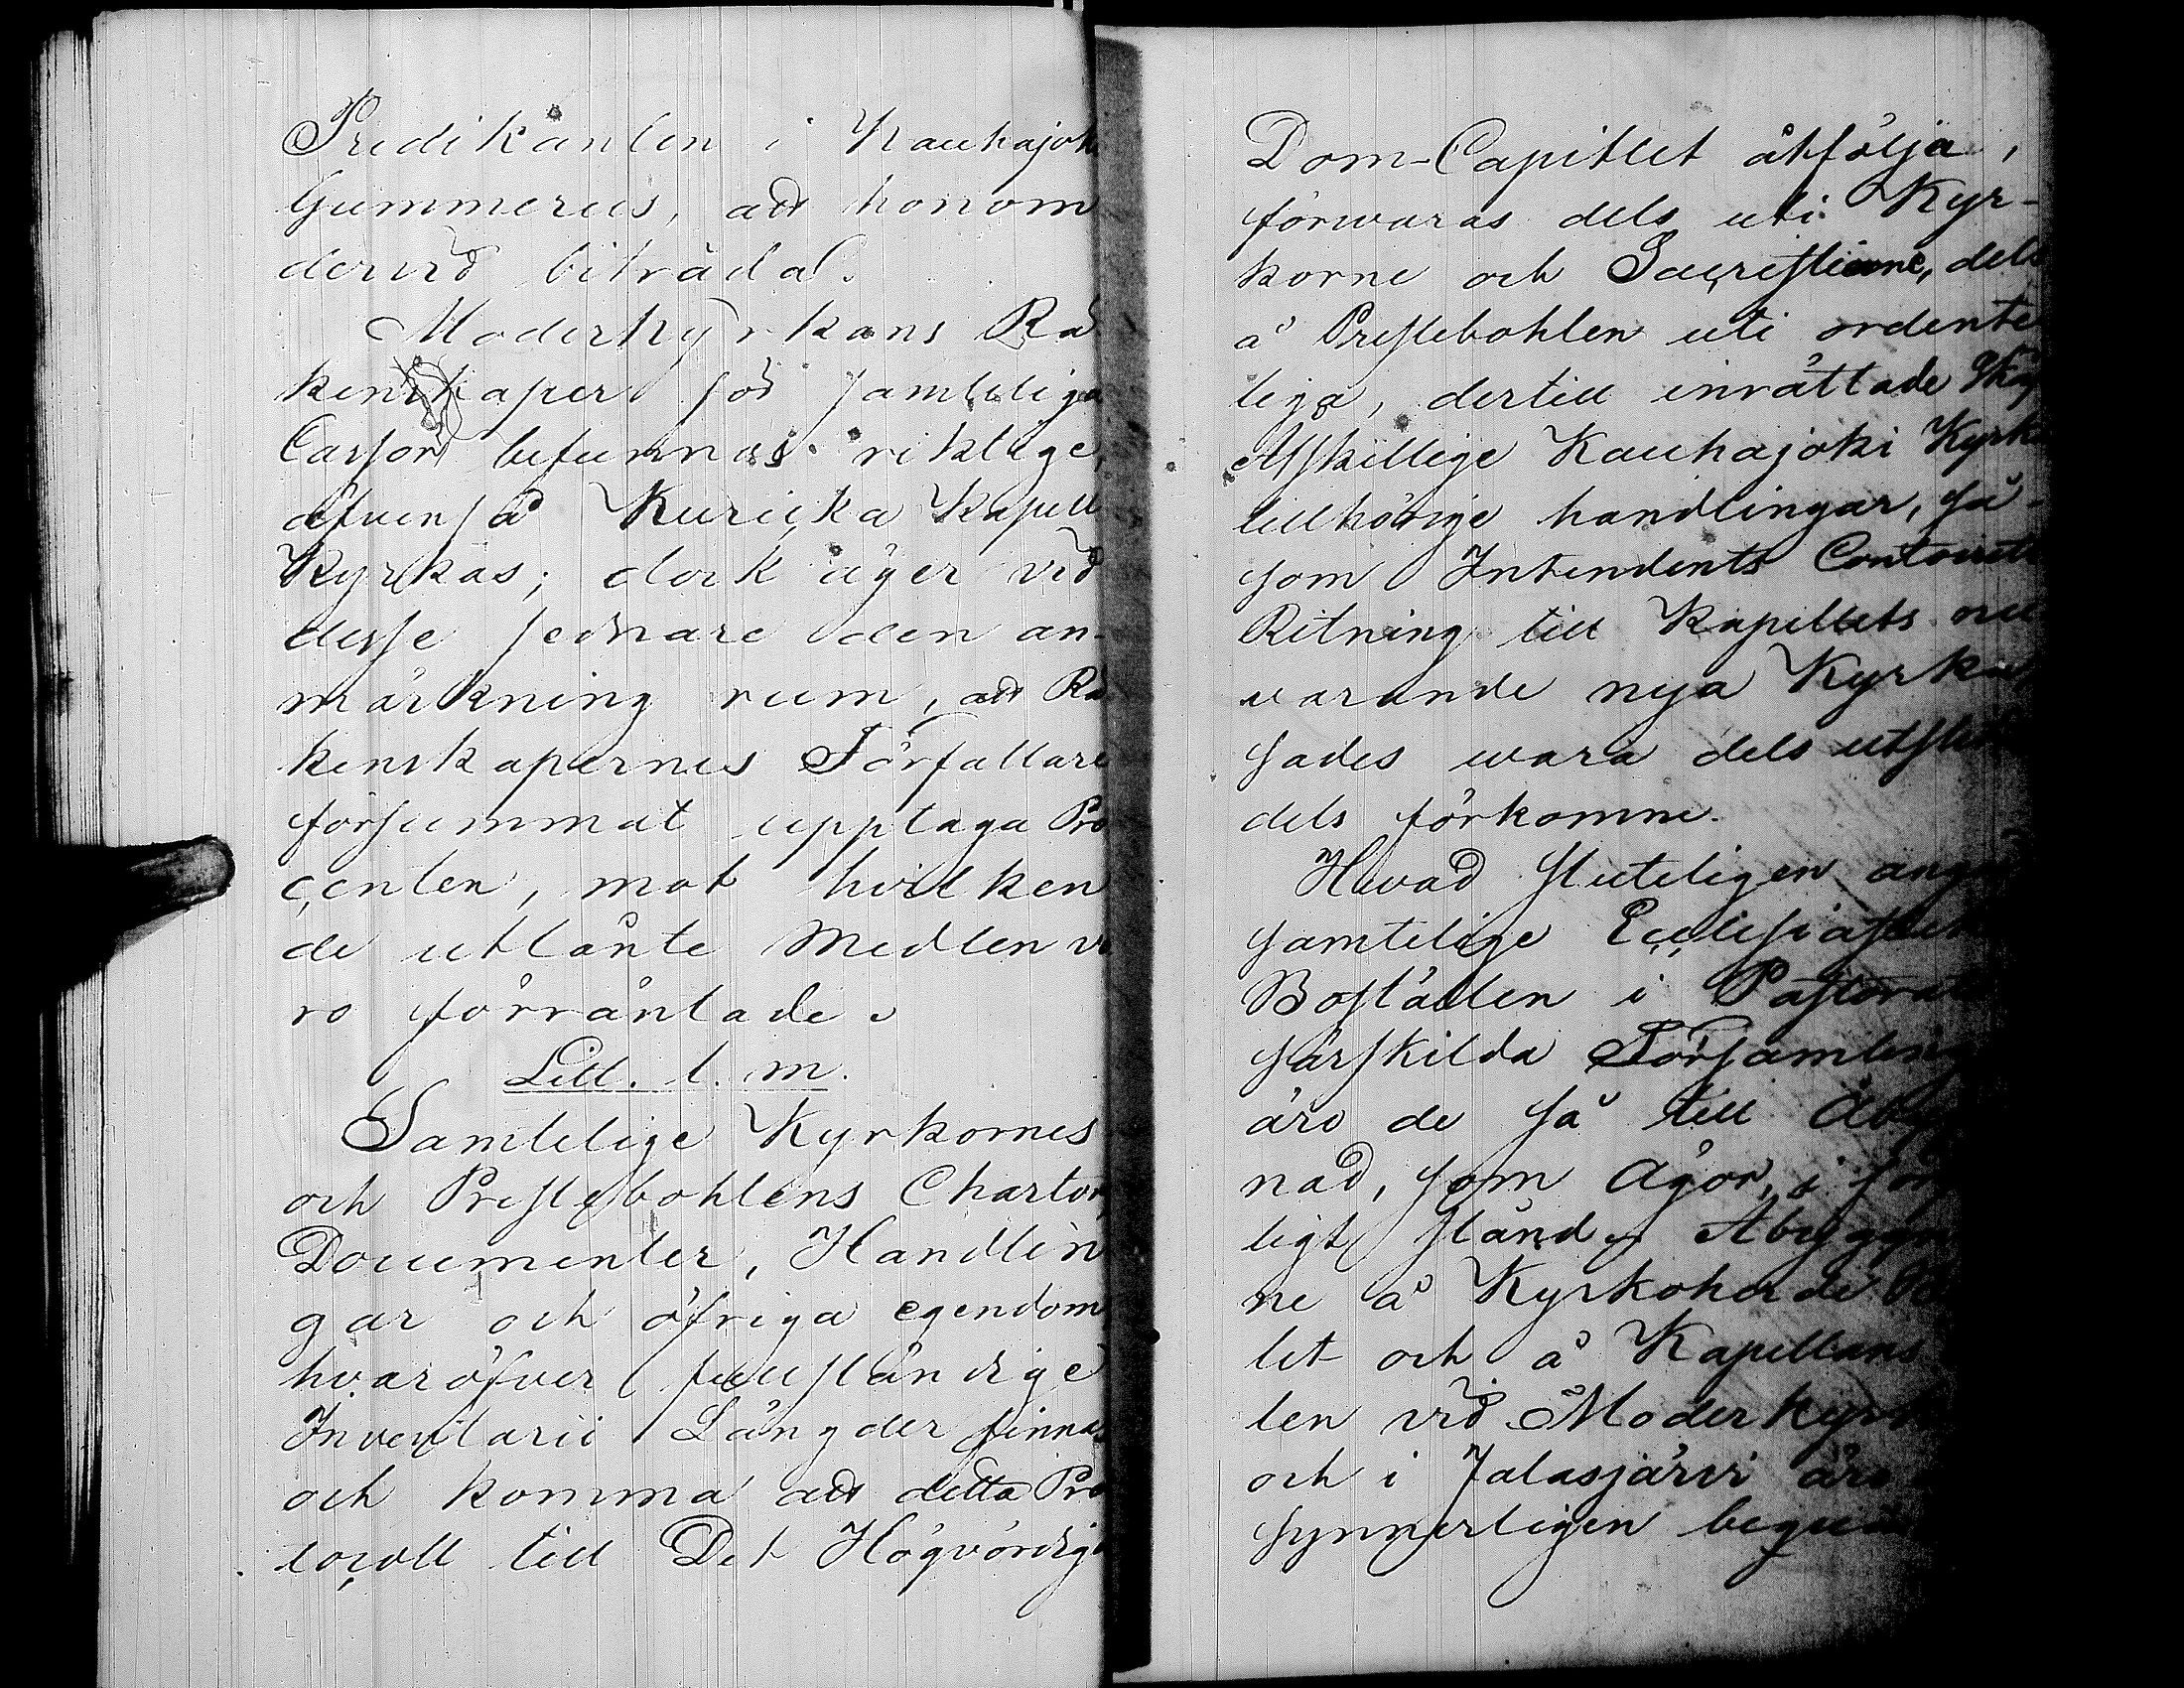 Predikanten i Kauhajoki
Gummerus, att honom
dervid biträda.
Moderkyrkans Rä
kenskaper för samteliga
Cassor befunnos riktige,
äfvenså Kuricka Kapell
Kyrkas; dock äger vid
desse sednare den an-
märkning rum, att Rä
kenskapernes Författare
försummat upptaga Pro
centen, mot hvilken
de utlånte Medlen vo
ro förräntade.
Litt. l. m.
Samtelige Kyrkornes
och Prestebohlens Chartor,
Documenter, Handlin
gar och öfriga egendom
hvaröfver fullständige
Inventarii Längder finnas
och komma att detta Pro
tocoll till Det Högvördige
Dom-Capitlet åtfölja,
förwaras dels uti Kyr-
korne och Sacristierne, dels
å Prestebohlen uti ordente
liga, dertill inrättade Skåp
Åtskillige Kauhajoki Kyrka
tillhörige handlingar, så-
som Intendents Contoirets
Ritning till Kapellets nu
varande nya Kyrka
sades wara dels
dels förkomne.
Hwad sluteligen
samtelige
Boställen i
särskilda
äro de så till
nad, som Ägor, i
ligt stånd.
ne å Kyrkoherde
let och å Kapellans
len vid Moderkyrkan
och i Jalasjärvi äro
synnerligen